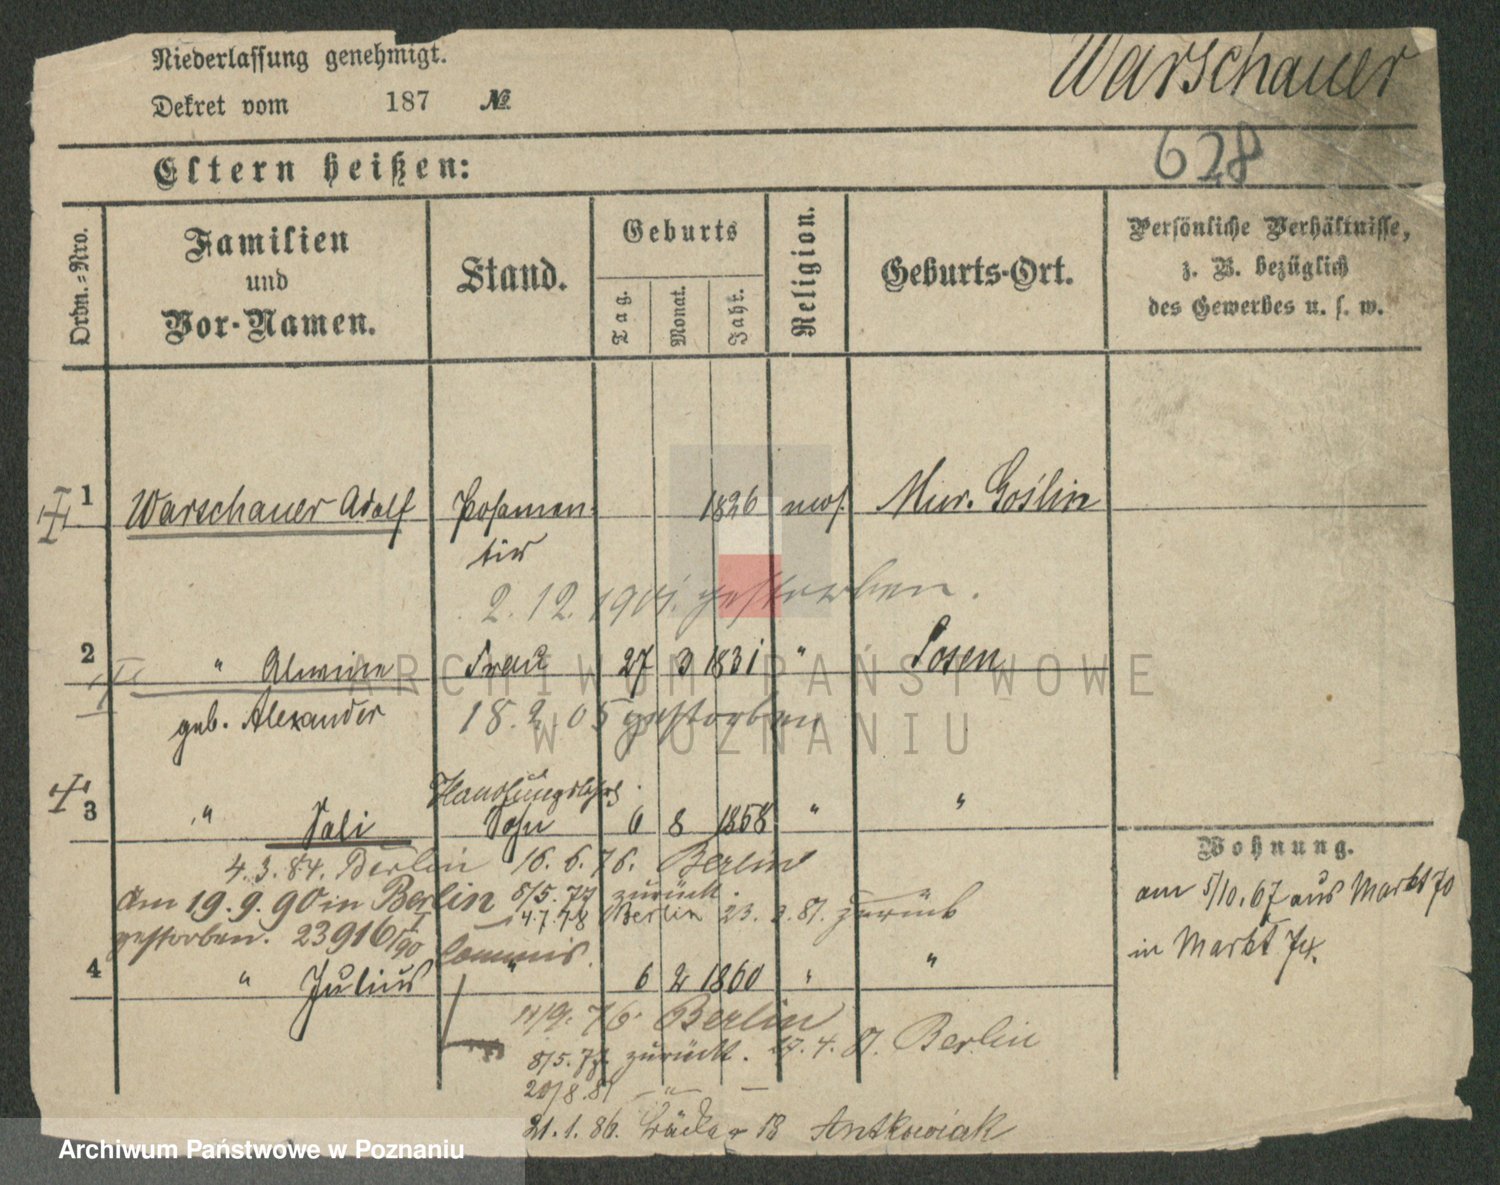 Niederlassung genehmigt.
Dekret vom 187 №
Warschauer
628
Eltern heißen:
Ordn.=Nro.
Familien
und
Vor-Namen.
Stand.
Geburts
Tag.
Monat.
Jahr.
Religion.
Geburts-Ort.
Persönliche Verhältnisse,
z. B. bezüglich
des Gewerbes u. s. w.
1 Warschauer Adolf Posamen- 1826 mos. Mur. Goślin
tir
2.12.1901. gestorben.
2 " Alwine Frau 27 3 1831 " Posen
geb. Alexander
18.2.05 gestorben
Handlungslehrl.
3 " Sali Sohn 6 8 1858 " "
4.3.84. Berlin 16.6.76. Berlin
am 19.9.90 in Berlin 8/5.77 zurück.
14.7.78 Berlin 23. 3.81. zurück
gestorben. 23916 I/90 Commis.
4 " Julius " 6 2 1860 " "
11/9. 76 Berlin
8/5.77. zurück. 17.4.81. Berlin
20/8.81 — " —
21.1.86. 18 Antkowiak
Wohnung.
am 5/10.67 aus Markt 70
in Markt 74.
ARCHIWUM PAŃSTWOWE
W POZNANIU
Archiwum Państwowe w Poznaniu